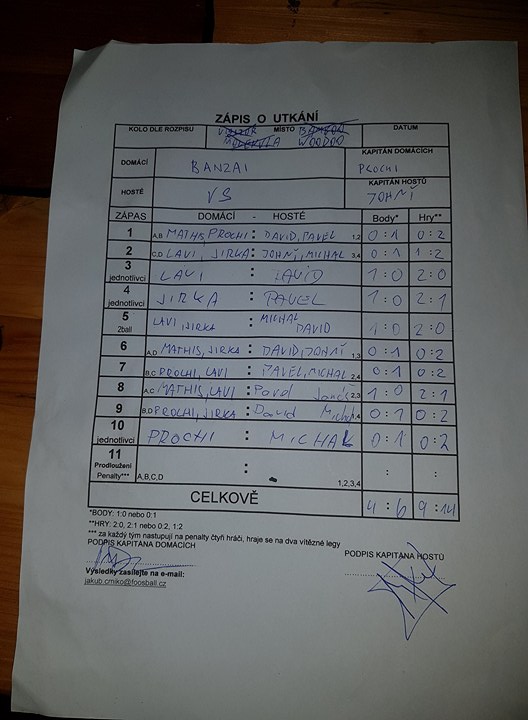 ZÁPIS O UTKÁNÍ
KOLO DLE ROZPISU MÍSTO DATUM
WOODOO
DOMÁCÍ BANZAI KAPITÁN DOMÁCÍCH PROCHI
HOSTÉ VS KAPITÁN HOSTŮ JOHNÍ
ZÁPAS DOMÁCÍ - HOSTÉ Body* Hry**
1 A,B MATHIS, PROCHI : DAVID, PAVEL 1,2 0:1 0:2
2 C,D LAVI, JIRKA : JOHNÍ, MICHAL 3,4 0:1 1:2
3 jednotlivci LAVI : DAVID 1:0 2:0
4 jednotlivci JIRKA : PAVEL 1:0 2:1
5 2ball LAVI, JIRKA : MICHAL DAVID 1:0 2:0
6 A,D MATHIS, JIRKA : DAVID, JOHNÍ 1,3 0:1 0:2
7 B,C PROCHI, LAVI : PAVEL, MICHAL 2,4 0:1 0:2
8 A,C MATHIS, LAVI : Pavel 2,3 1:0 2:1
9 B,D PROCHI, JIRKA : David 1,4 0:1 0:2
10 jednotlivci PROCHI : MICHAL 0:1 0:2
11 Prodloužení Penalty*** A,B,C,D : 1,2,3,4 : :
CELKOVĚ 4:6 9:14
*BODY: 1:0 nebo 0:1
**HRY: 2:0, 2:1 nebo 0:2, 1:2
*** za každý tým nastupují na penalty čtyři hráči, hraje se na dva vítězné legy
PODPIS KAPITÁNA DOMÁCÍCH PODPIS KAPITÁNA HOSTŮ
Výsledky zasílejte na e-mail:
jakub.crniko@foosball.cz